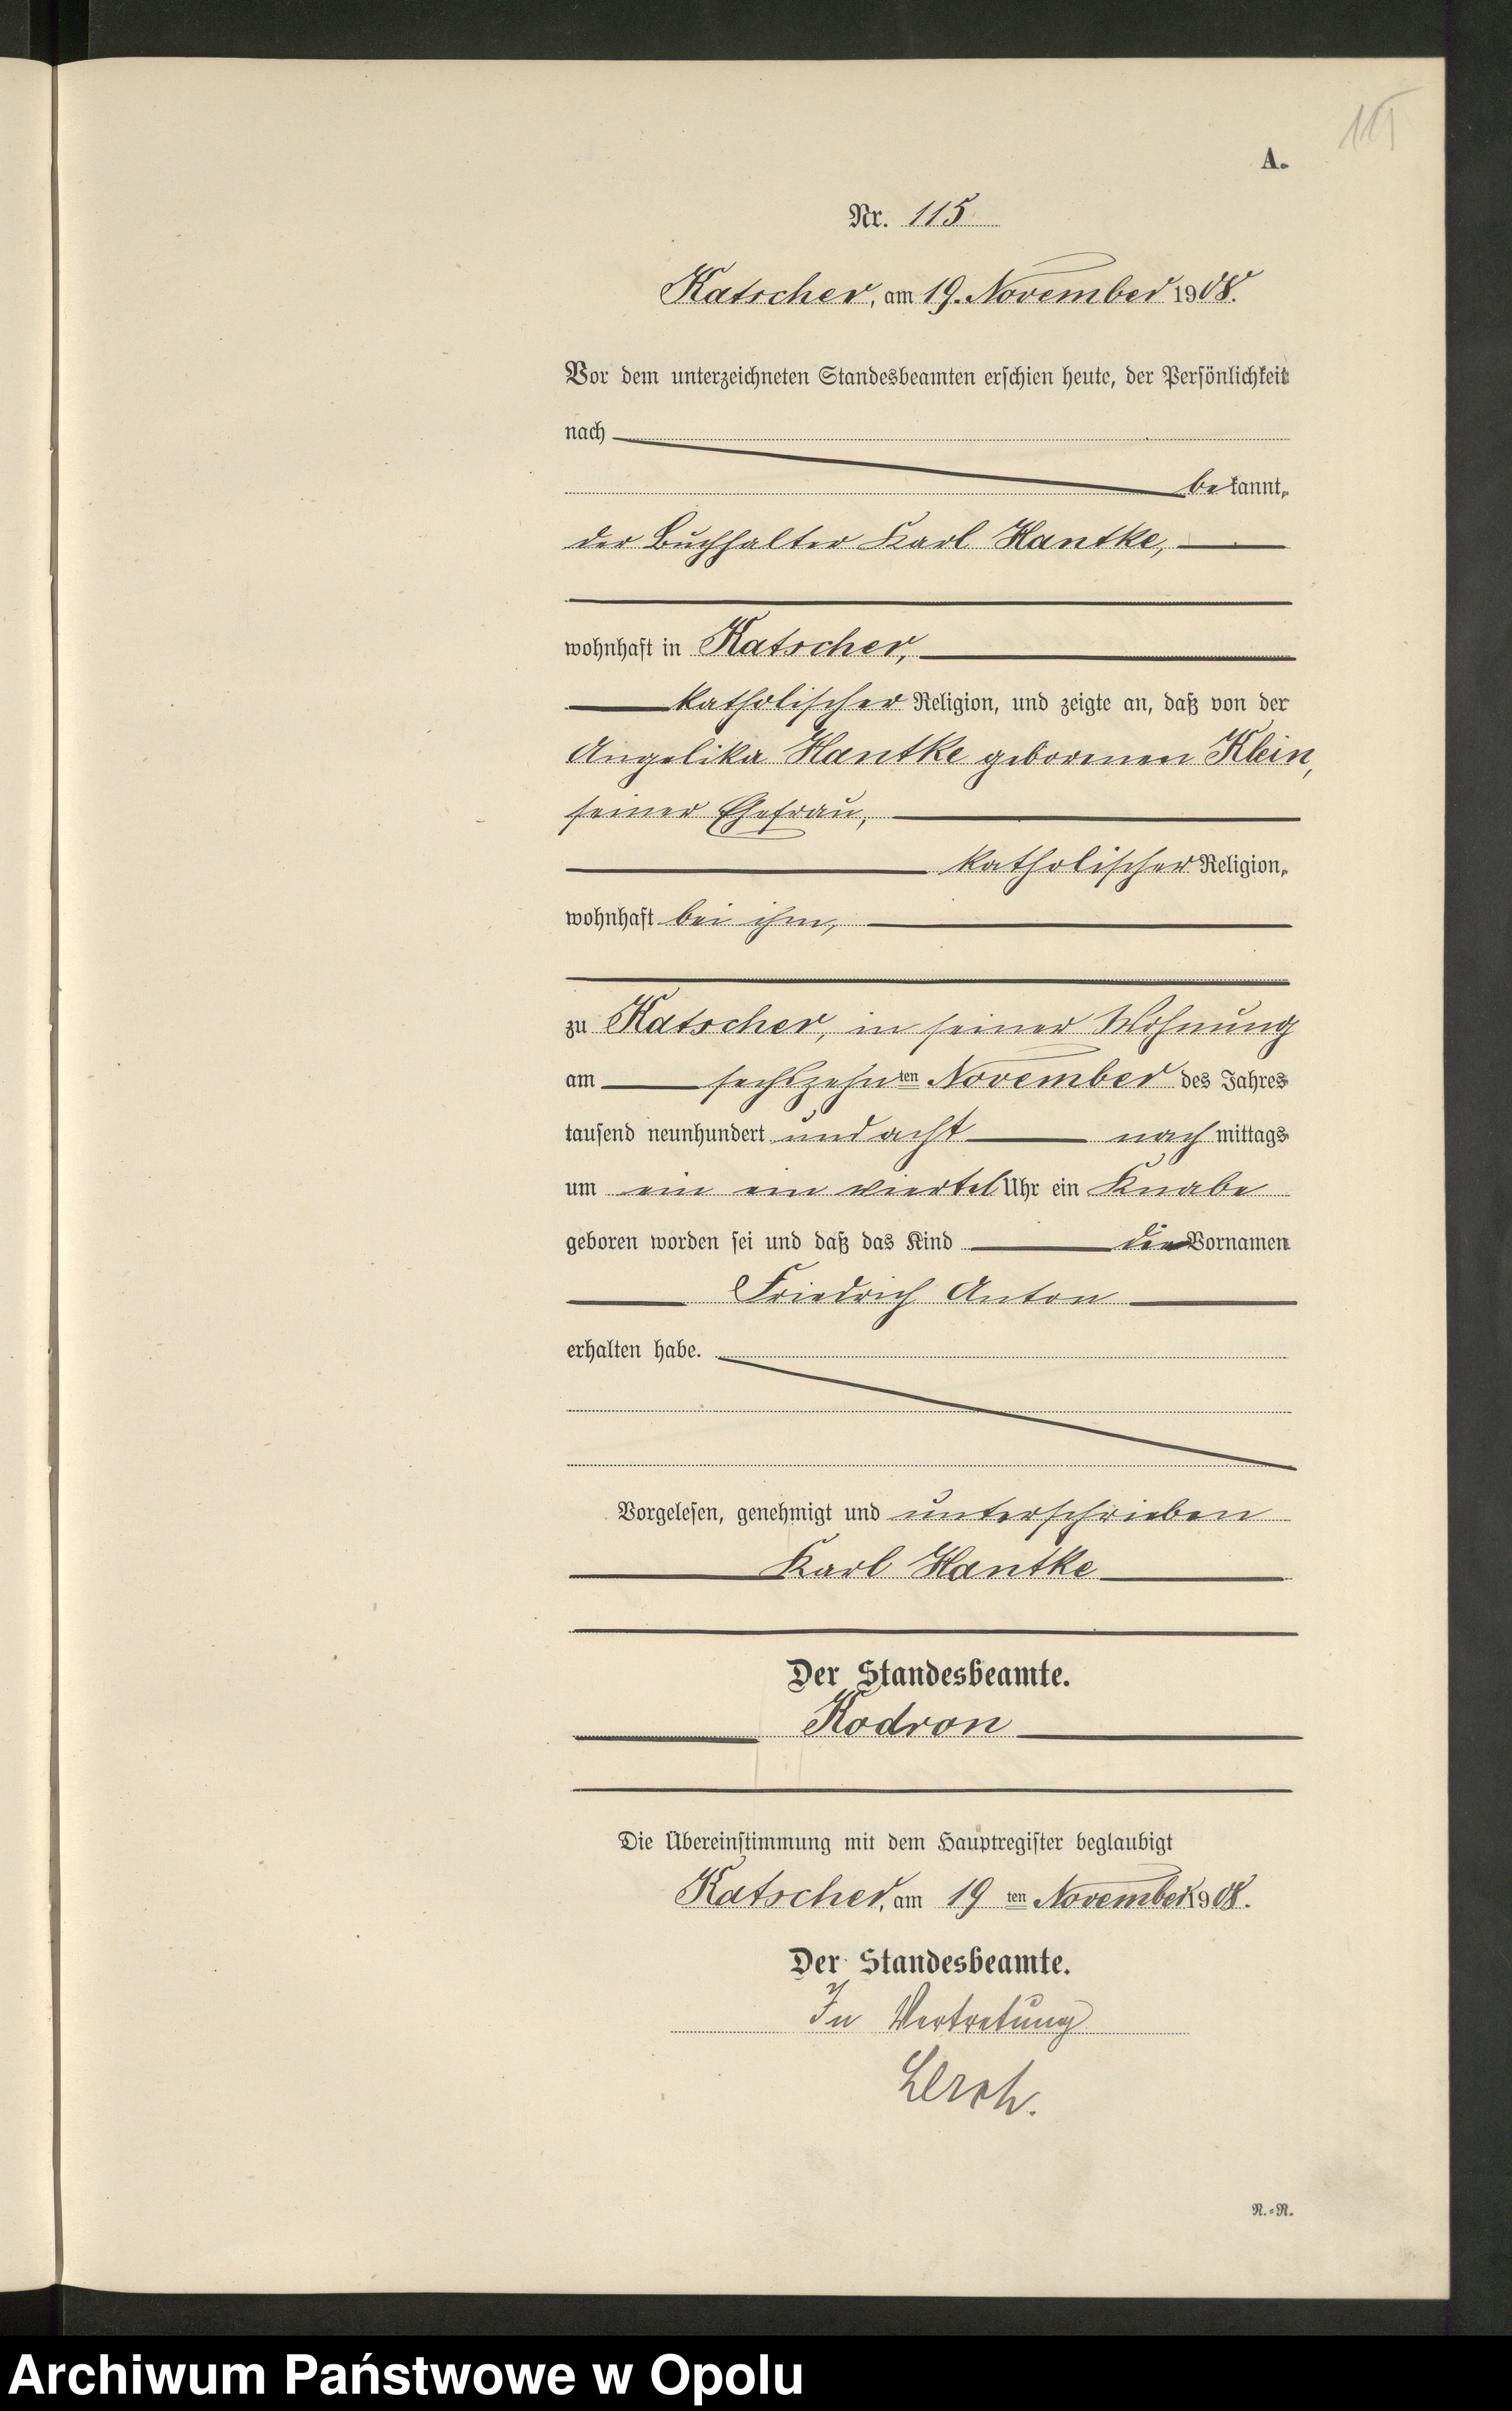 115
A.
Nr. 115
Katscher, am 19. November 1908.
Vor dem unterzeichneten Standesbeamten erschien heute, der Persönlichkeit
nach
bekannt,
der Buchhalter Karl Hantke,
wohnhaft in Katscher,
katholischer Religion, und zeigte an, daß von der
Angelika Hantke geborenen Klein,
seiner Ehefrau,
katholischer Religion,
wohnhaft bei ihm,
zu Katscher, in seiner Wohnung
am sechszehnten November des Jahres
tausend neunhundert und acht nachmittags
um ein ein viertel Uhr ein Knabe
geboren worden sei und daß das Kind die Vornamen
Friedrich Anton
erhalten habe.
Vorgelesen, genehmigt und unterschrieben
Karl Hantke
Der Standesbeamte.
Kodron
Die Übereinstimmung mit dem Hauptregister beglaubigt
Katscher, am 19ten November 1908.
Der Standesbeamte.
In Vertretung
Lerch.
N.=R.
Archiwum Państwowe w Opolu